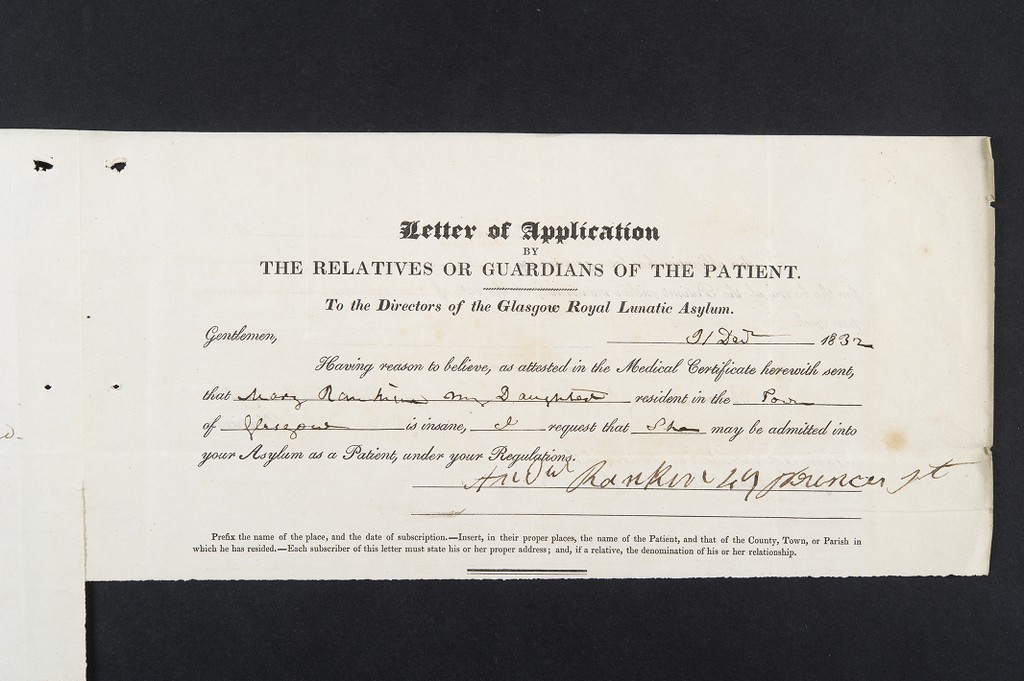 Letter of Application
BY
THE RELATIVES OR GUARDIANS OF THE PATIENT.
To the Directors of the Glasgow Royal Lunatic Asylum.
Gentlemen, 31 Decr 1832
Having reason to believe, as attested in the Medical Certificate herewith sent,
that Mary Rankine my Daughter resident in the Town
of Glasgow is insane, I request that She may be admitted into
your Asylum as a Patient, under your Regulations.
Rankine 49 princes st
Prefix the name of the place, and the date of subscription.—Insert, in their proper places, the name of the Patient, and that of the County, Town, or Parish in
which he has resided.—Each subscriber of this letter must state his or her proper address; and, if a relative, the denomination of his or her relationship.